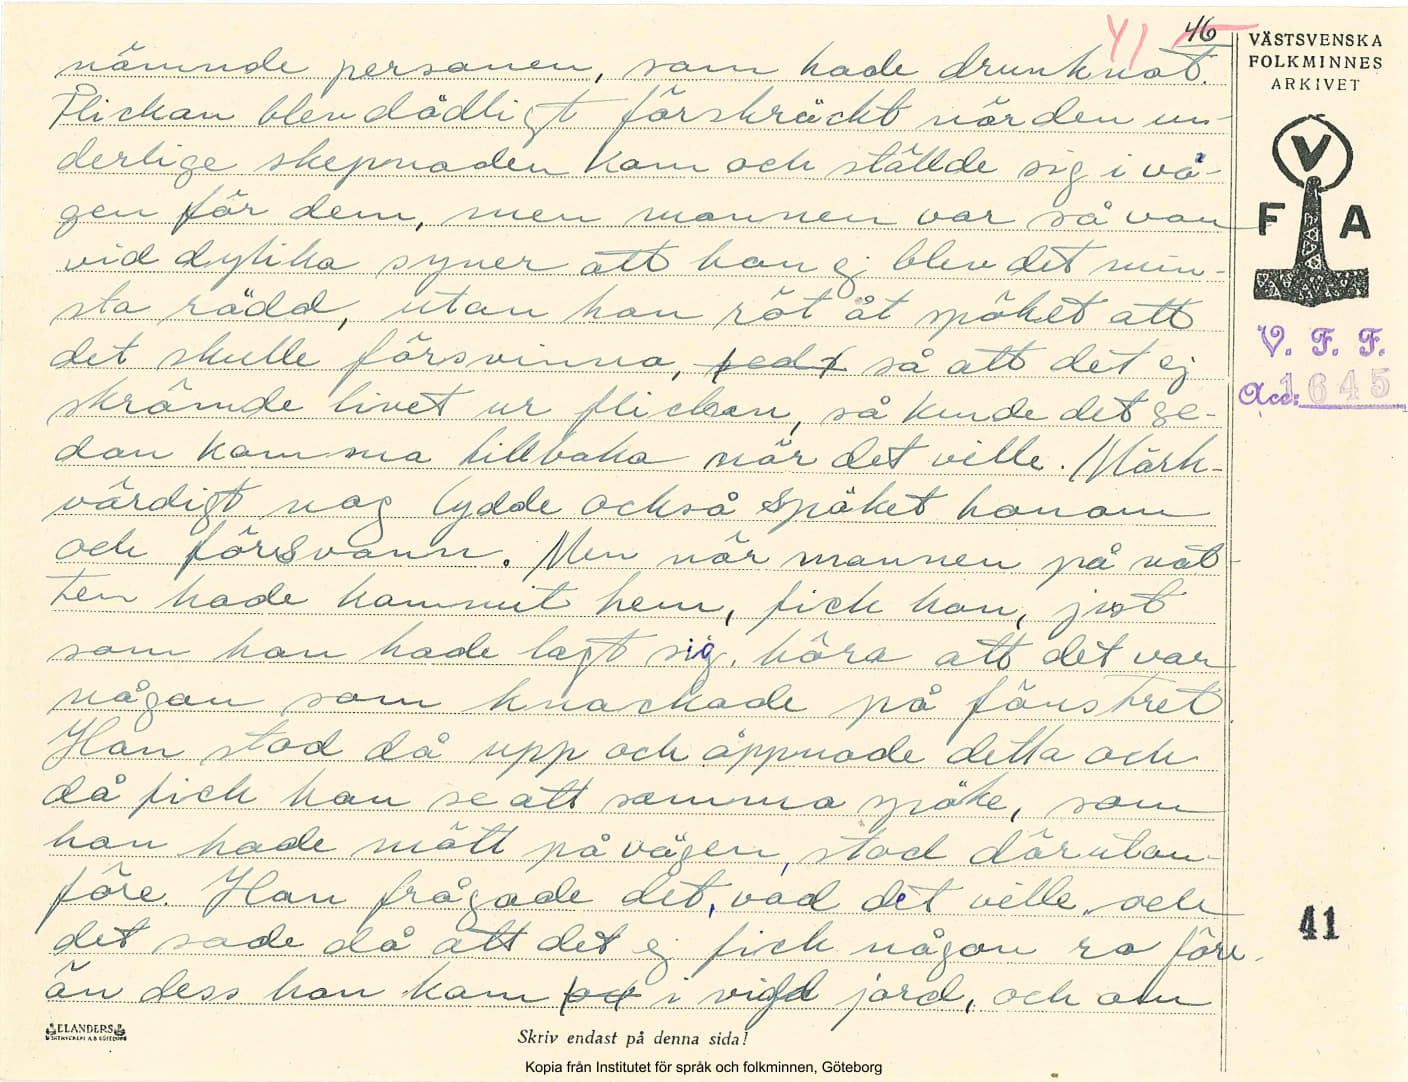 41 46
nämnde personen, som hade drunknat.
Flickan blev dödligt förskräckt när den un-
derlige skepnaden kom och ställde sig i vä-
gen för dem, men mannen var så van
vid dylika syner att han ej blev det min-
sta rädd, utan han röt åt spöket att
det skulle försvinna, så att det ej
skrämde livet ur flickan, så kunde det se-
dan komma tillbaka när det ville. Märk-
värdigt nog lydde också spöket honom
och försvann. Men när mannen på nat-
ten hade kommit hem, fick han, just
som han hade lagt sig, höra att det var
någon som knackade på fönstret
Han stod då upp och öppnade detta och
då fick han se att samma spöke, som
han hade mött på vägen, stod därutan-
före. Han frågade det, vad det ville, och
det sade då att det ej fick någon ro förr
än dess han kom i vigd jord, och om
VÄSTSVENSKA
FOLKMINNES
ARKIVET
V
F A
V. F. F.
Acc: 1645
41
ELANDERS
Skriv endast på denna sida!
Kopia från Institutet för språk och folkminnen, Göteborg